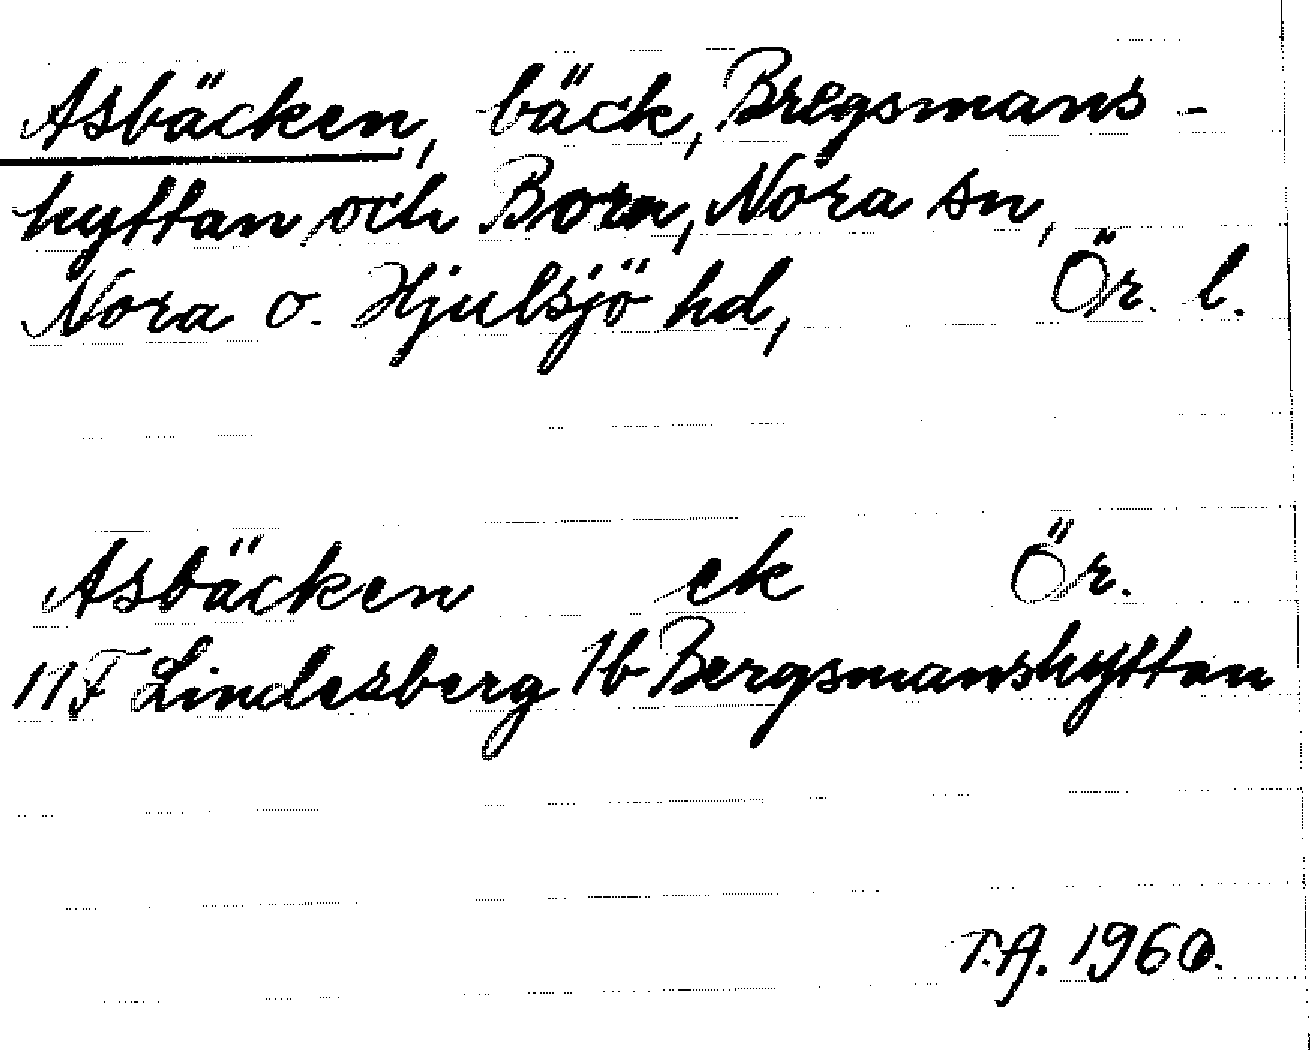 Asbäcken, bäck, Bregsmans-
hyttan och Born, Nora sn,
Nora o. Hjulsjö hd, Ör. l.
Asbäcken ek Ör.
11F Lindesberg 1b Bergsmanshyttan
T.A. 1960.